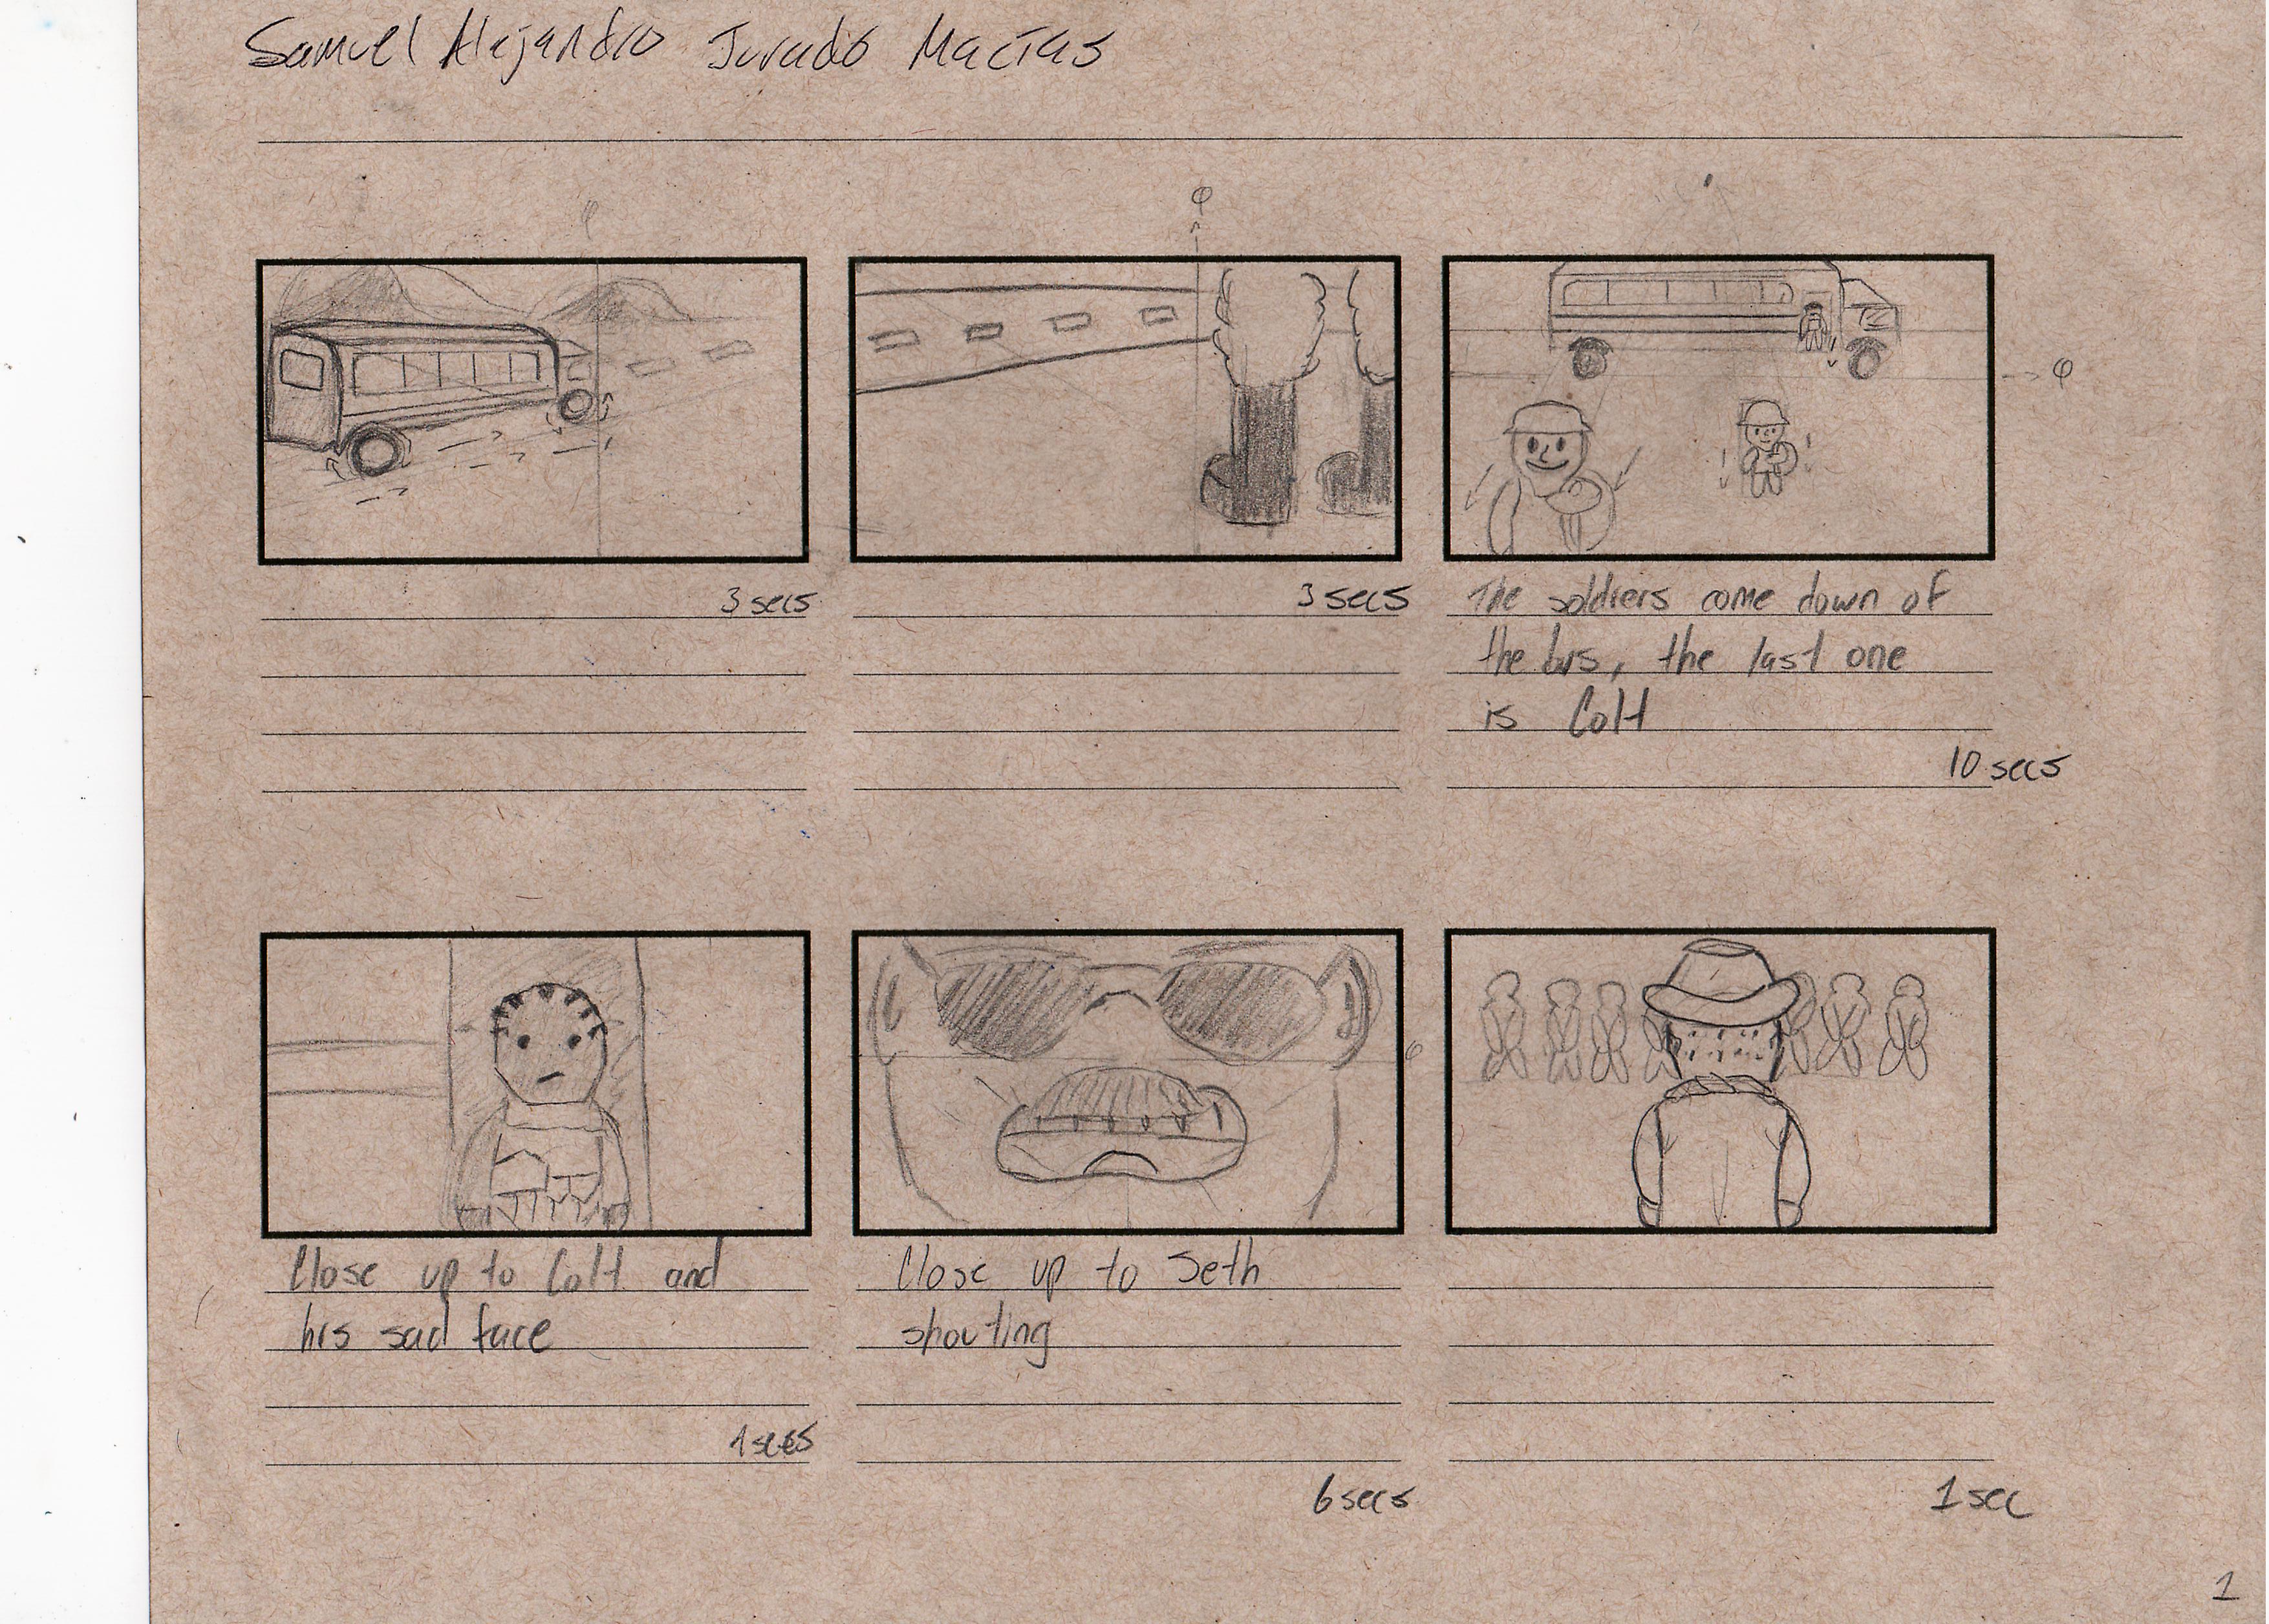 Samuel Alejandro Jurado Macías
3 secs
3 secs
The soldiers come down of
the bus, the last one
is Colt
10 secs
Close up to Colt and
his sad face
1 secs
Close up to Seth
shouting
6 secs
1 sec
1